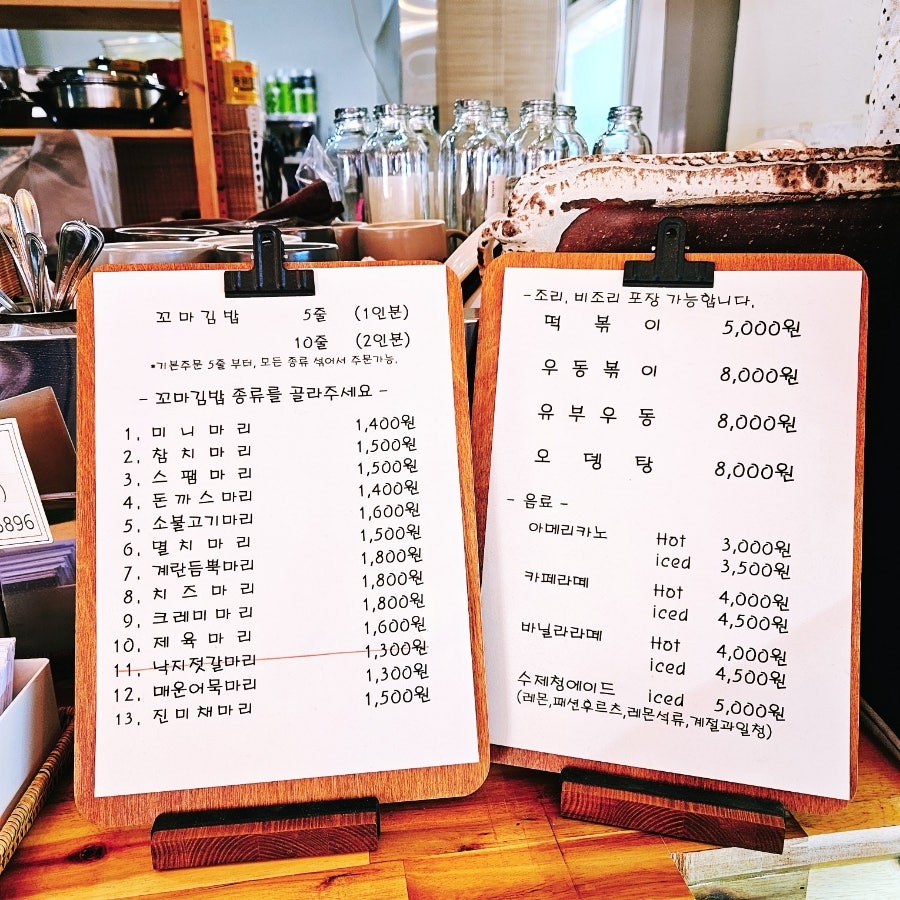 꼬마김밥 5줄 (1인분)
10줄 (2인분)
*기본주문 5줄 부터, 모든 종류 섞어서 주문가능.
- 꼬마김밥 종류를 골라주세요 -
1. 미니마리 1,400원
2. 참치마리 1,500원
3. 스팸마리 1,500원
4. 돈까스마리 1,400원
5. 소불고기마리 1,600원
6. 멸치마리 1,500원
7. 계란듬뿍마리 1,800원
8. 치즈마리 1,800원
9. 크레미마리 1,800원
10. 제육마리 1,600원
11. 낙지젓갈마리 1,300원
12. 매운어묵마리 1,300원
13. 진미채마리 1,500원
-조리, 비조리 포장 가능합니다.
떡볶이 5,000원
우동볶이 8,000원
유부우동 8,000원
오뎅탕 8,000원
- 음료 -
아메리카노 Hot 3,000원
iced 3,500원
카페라떼 Hot 4,000원
iced 4,500원
바닐라라떼 Hot 4,000원
iced 4,500원
수제청에이드 iced 5,000원
(레몬,패션후르츠,레몬석류,계절과일청)